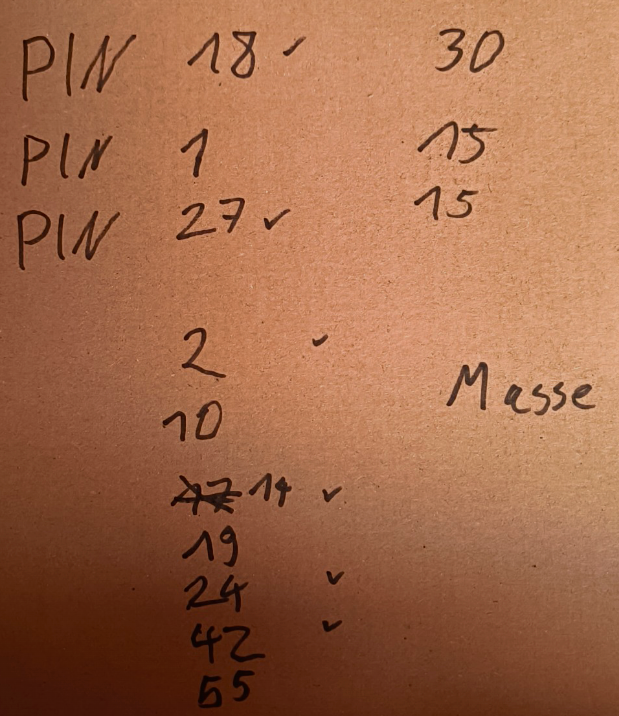 PIN 18 ✓ 30
PIN 1 15
PIN 27 ✓ 15
2 ✓
Masse
10
14 ✓
19
24 ✓
42 ✓
55